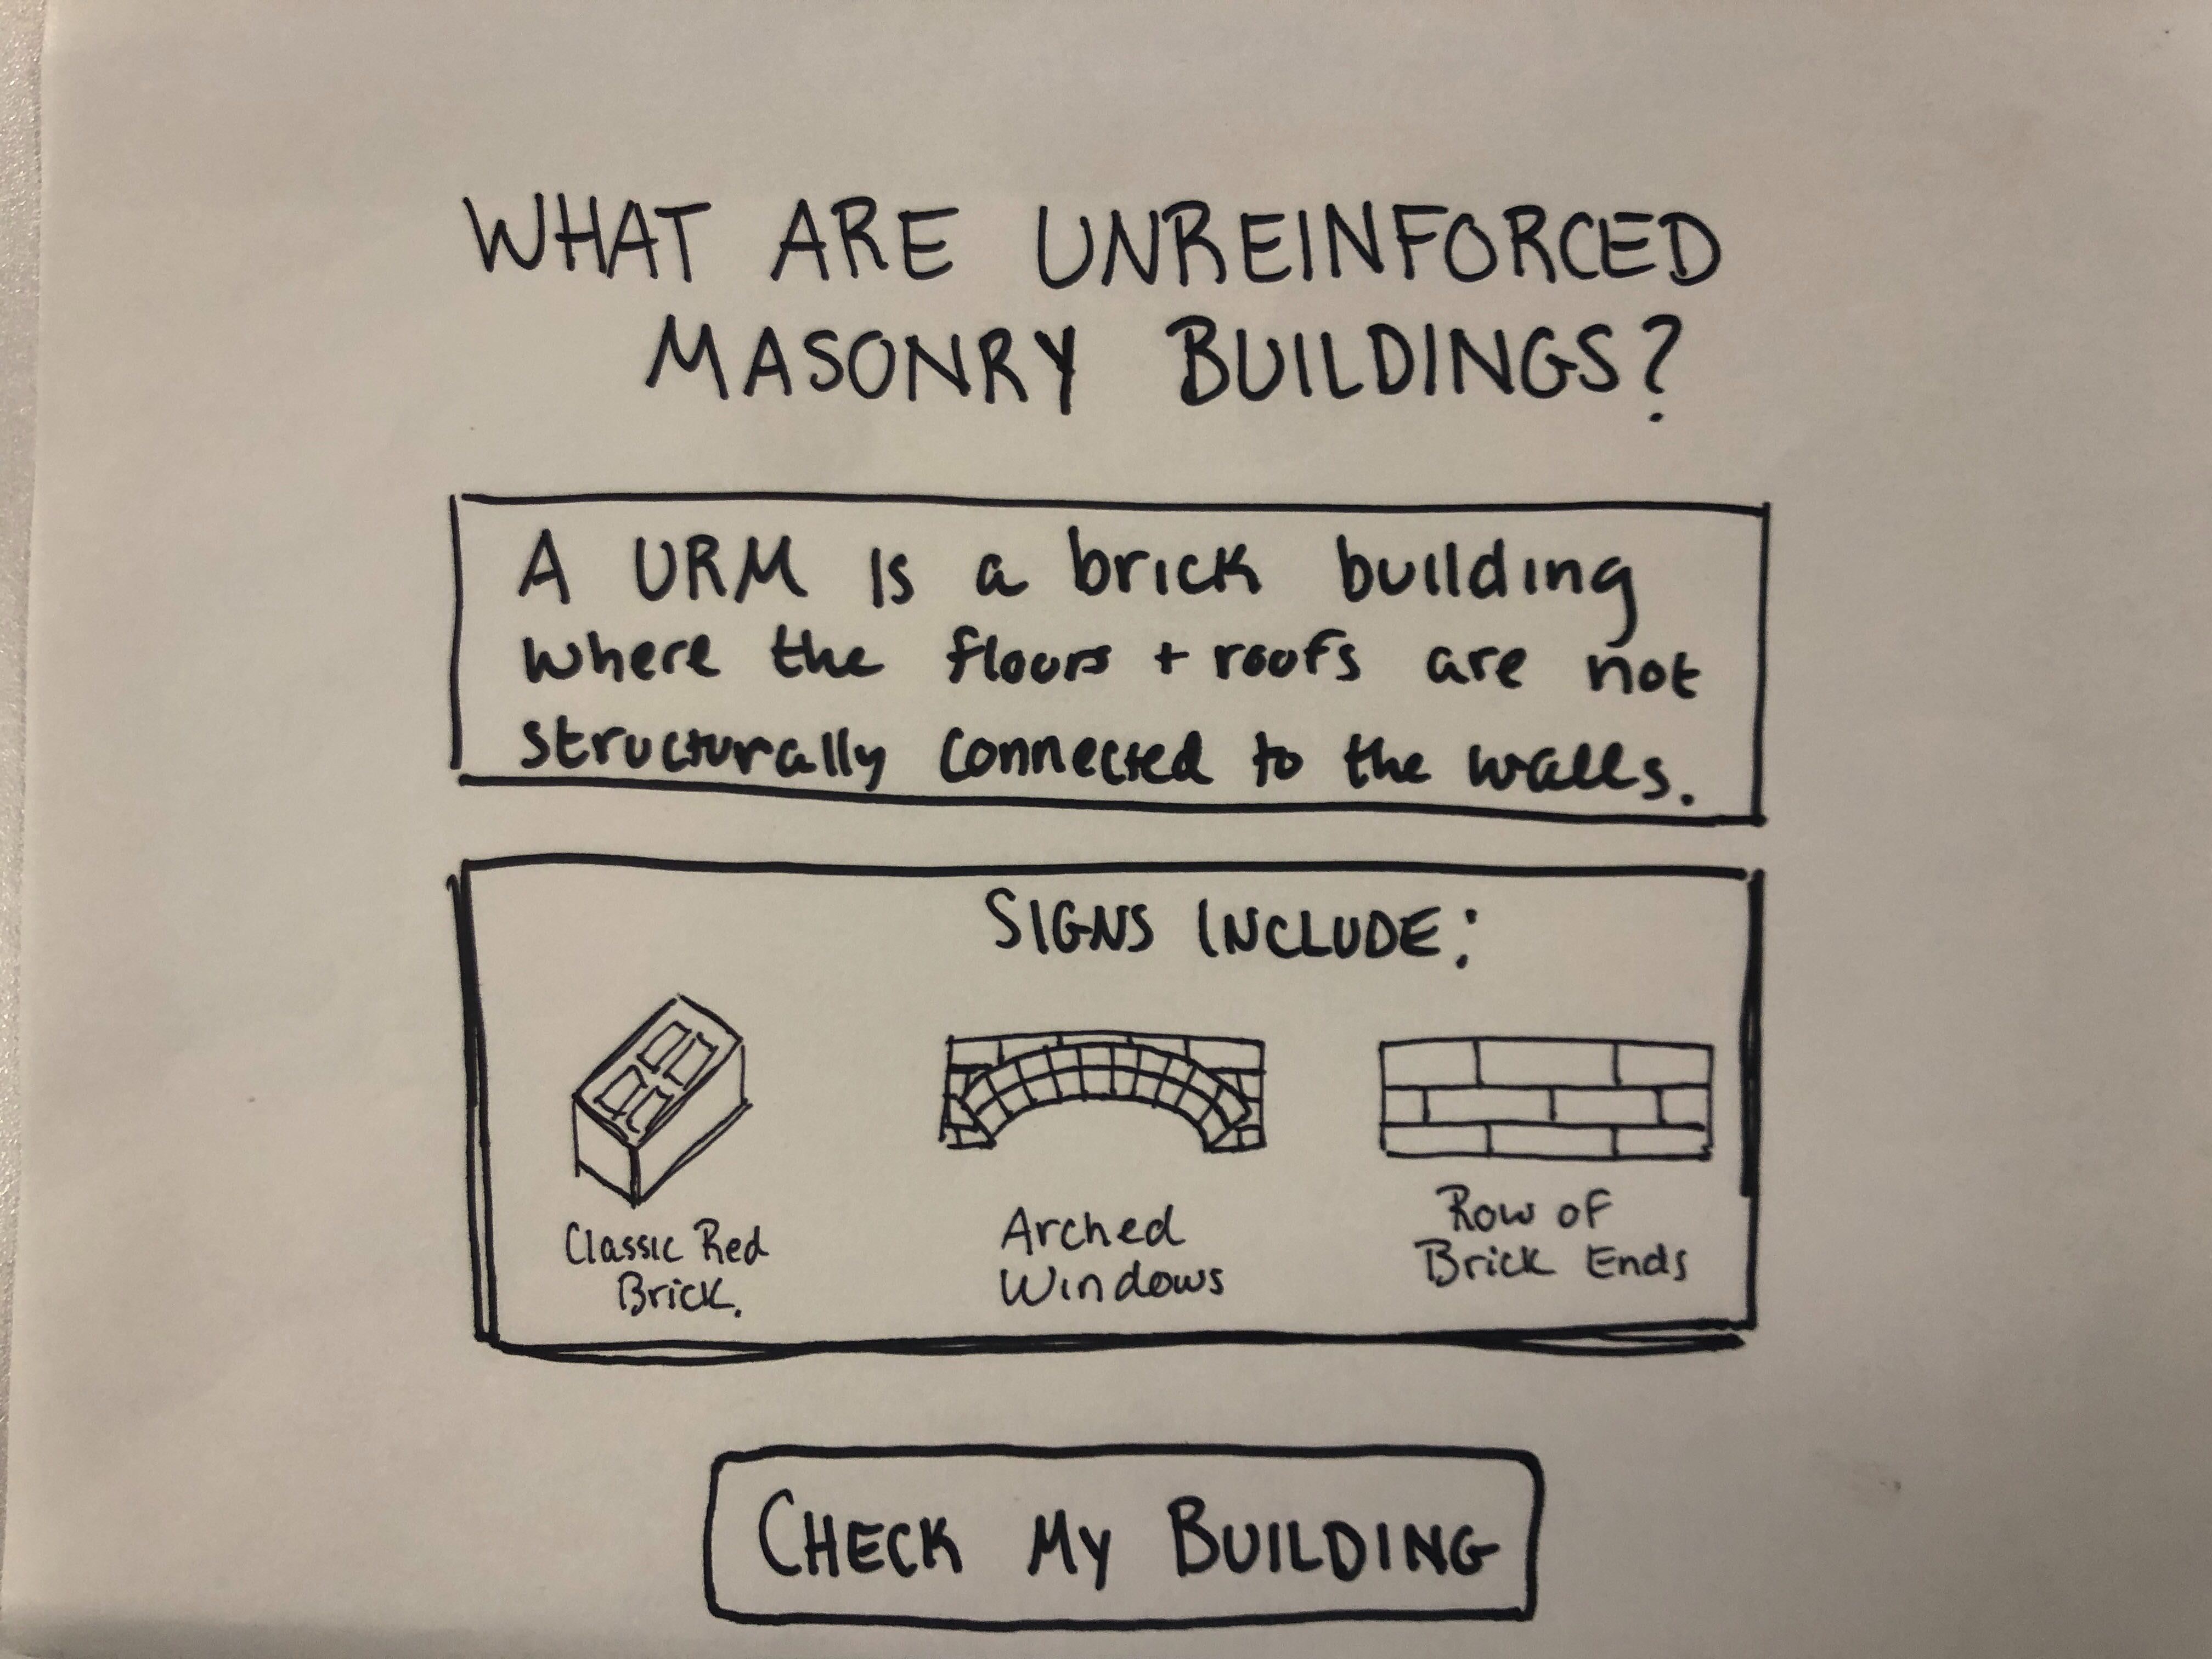 WHAT ARE UNREINFORCED
MASONRY BUILDINGS?
A URM is a brick building
where the floors + roofs are not
structurally connected to the walls.
SIGNS INCLUDE:
Classic Red
Brick.
Arched
Windows
Row of
Brick Ends
CHECK MY BUILDING